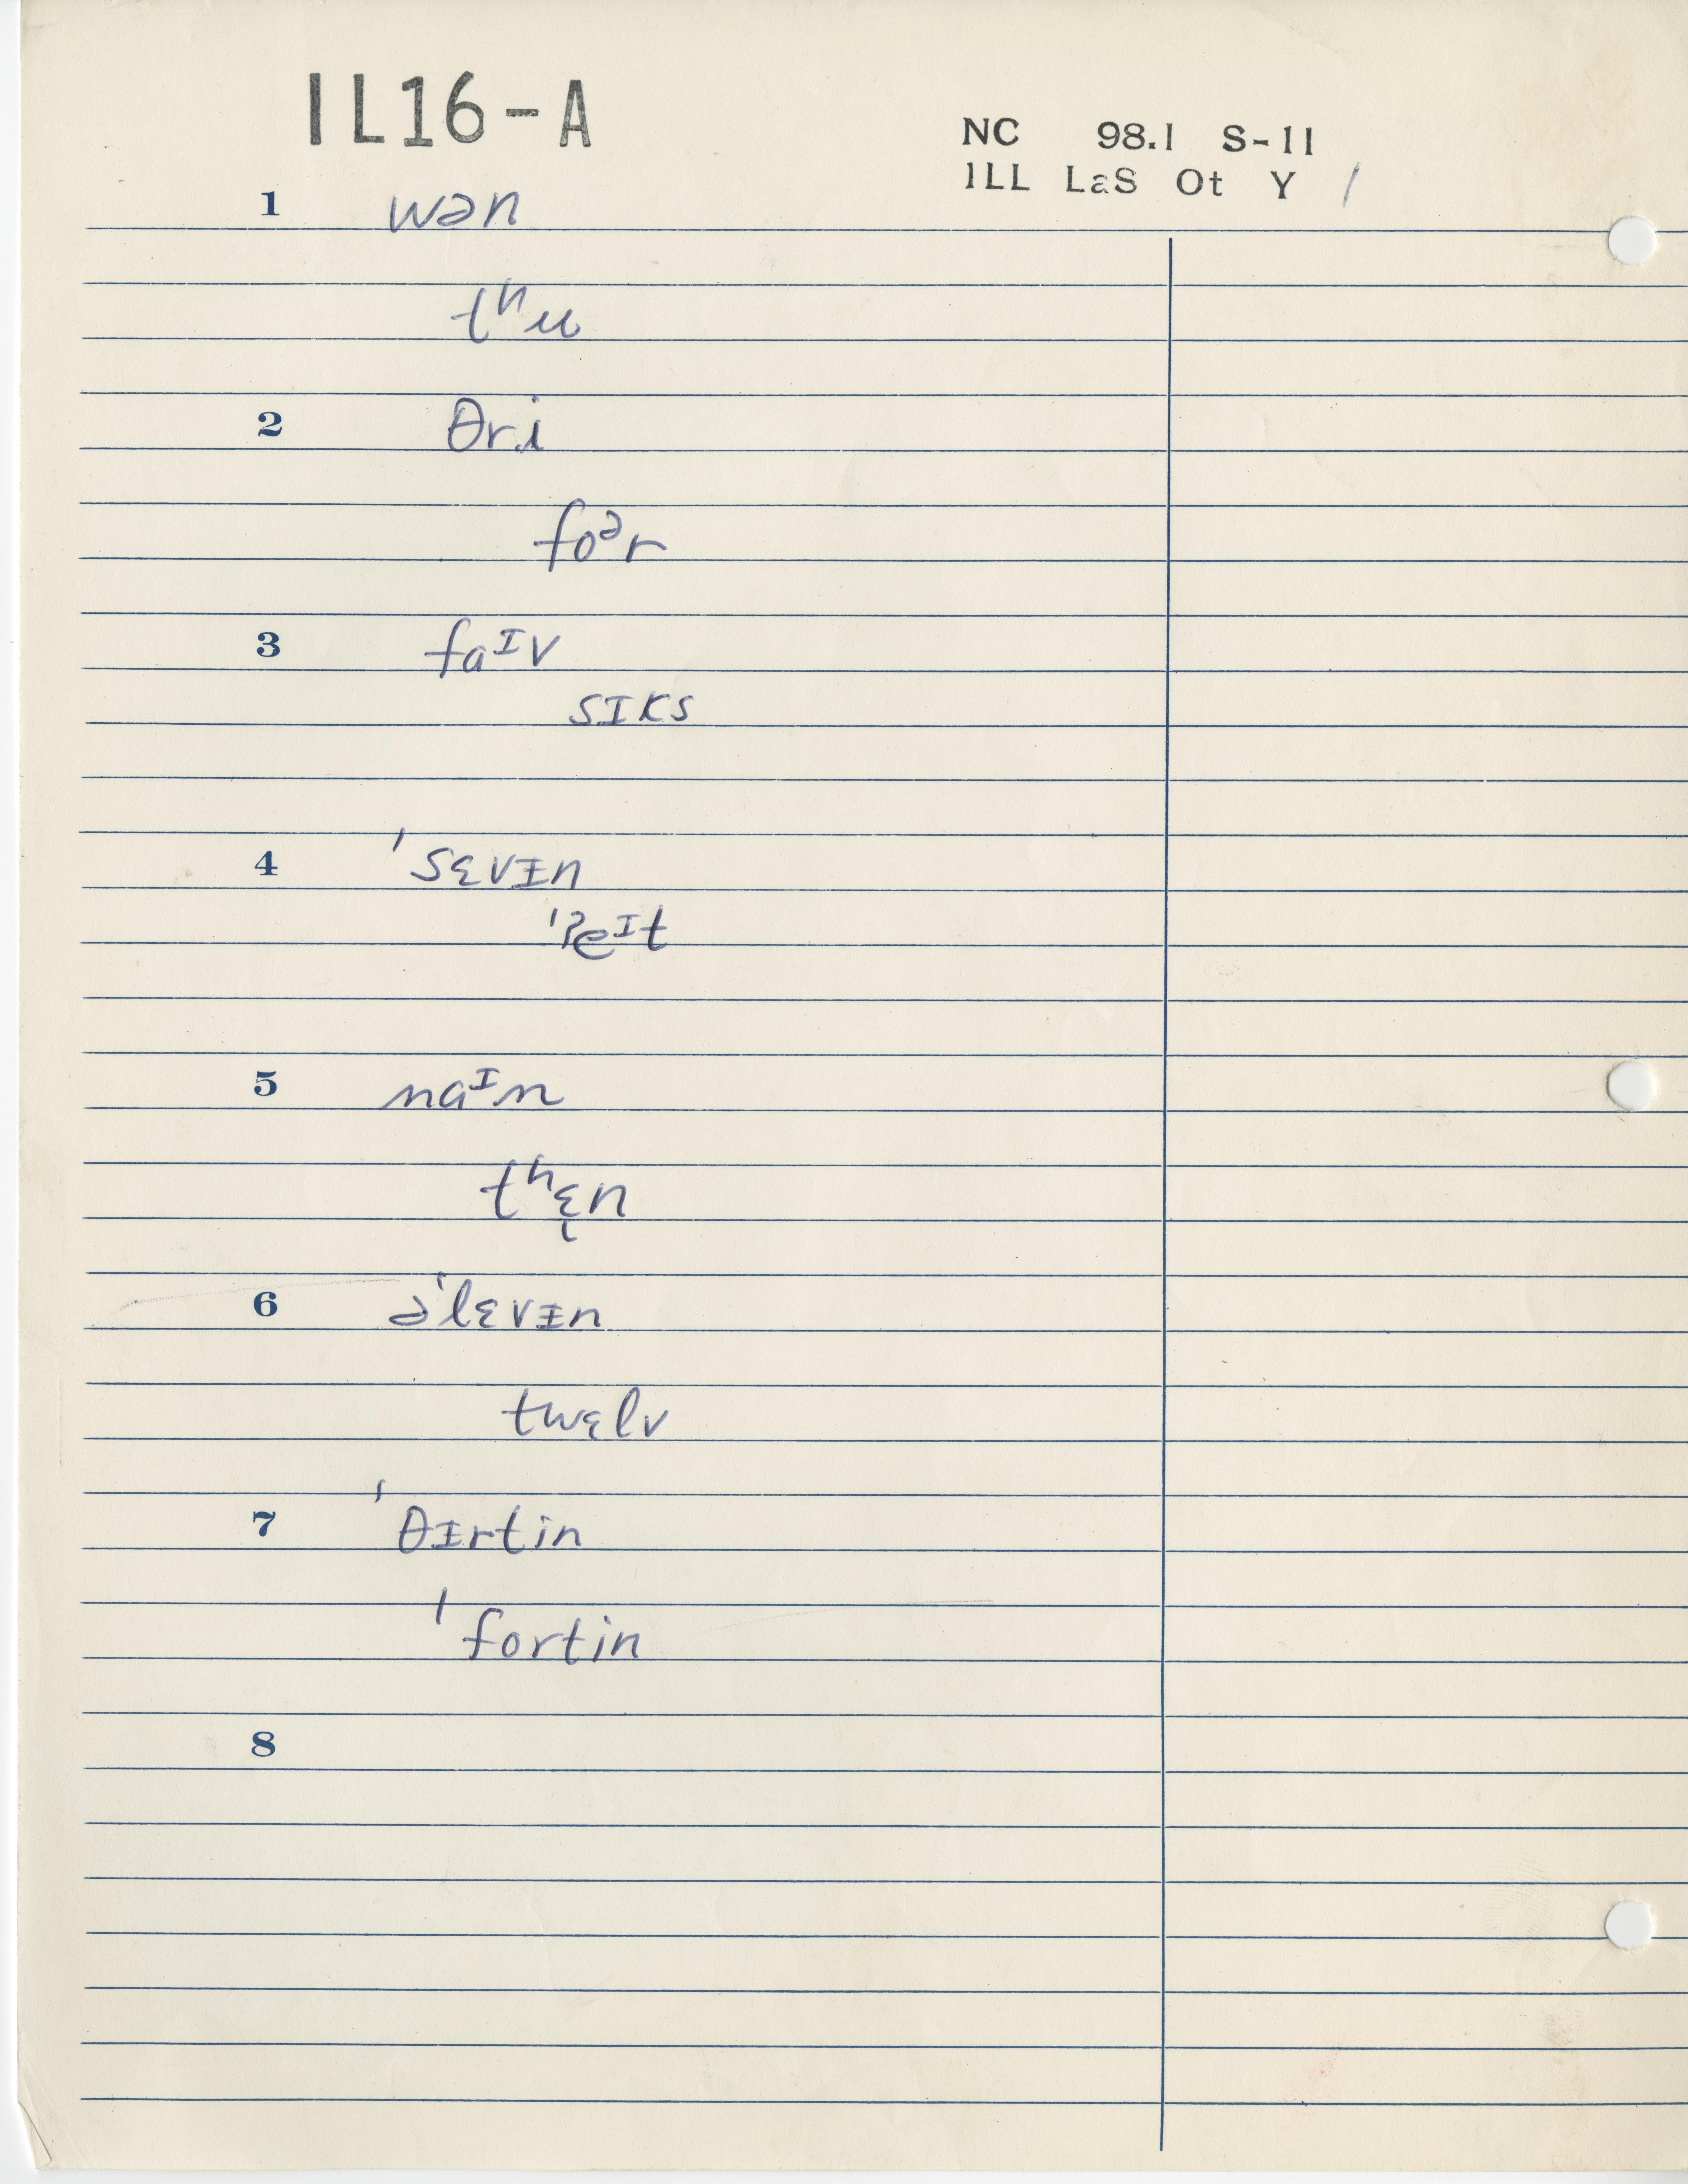 IL16-A
NC 98.1 S-11
ILL LaS Ot Y /
1 wən
tʰu
2 θri
foᵊr
3 faᶦv
sɪks
4 ˈsɛvᵻn
ˈʔeᶦt
5 naᶦn
tʰɛ̞n
6 əˈlɛvᵻn
twɛlv
7 ˈθᵻrtin
ˈfortin
8